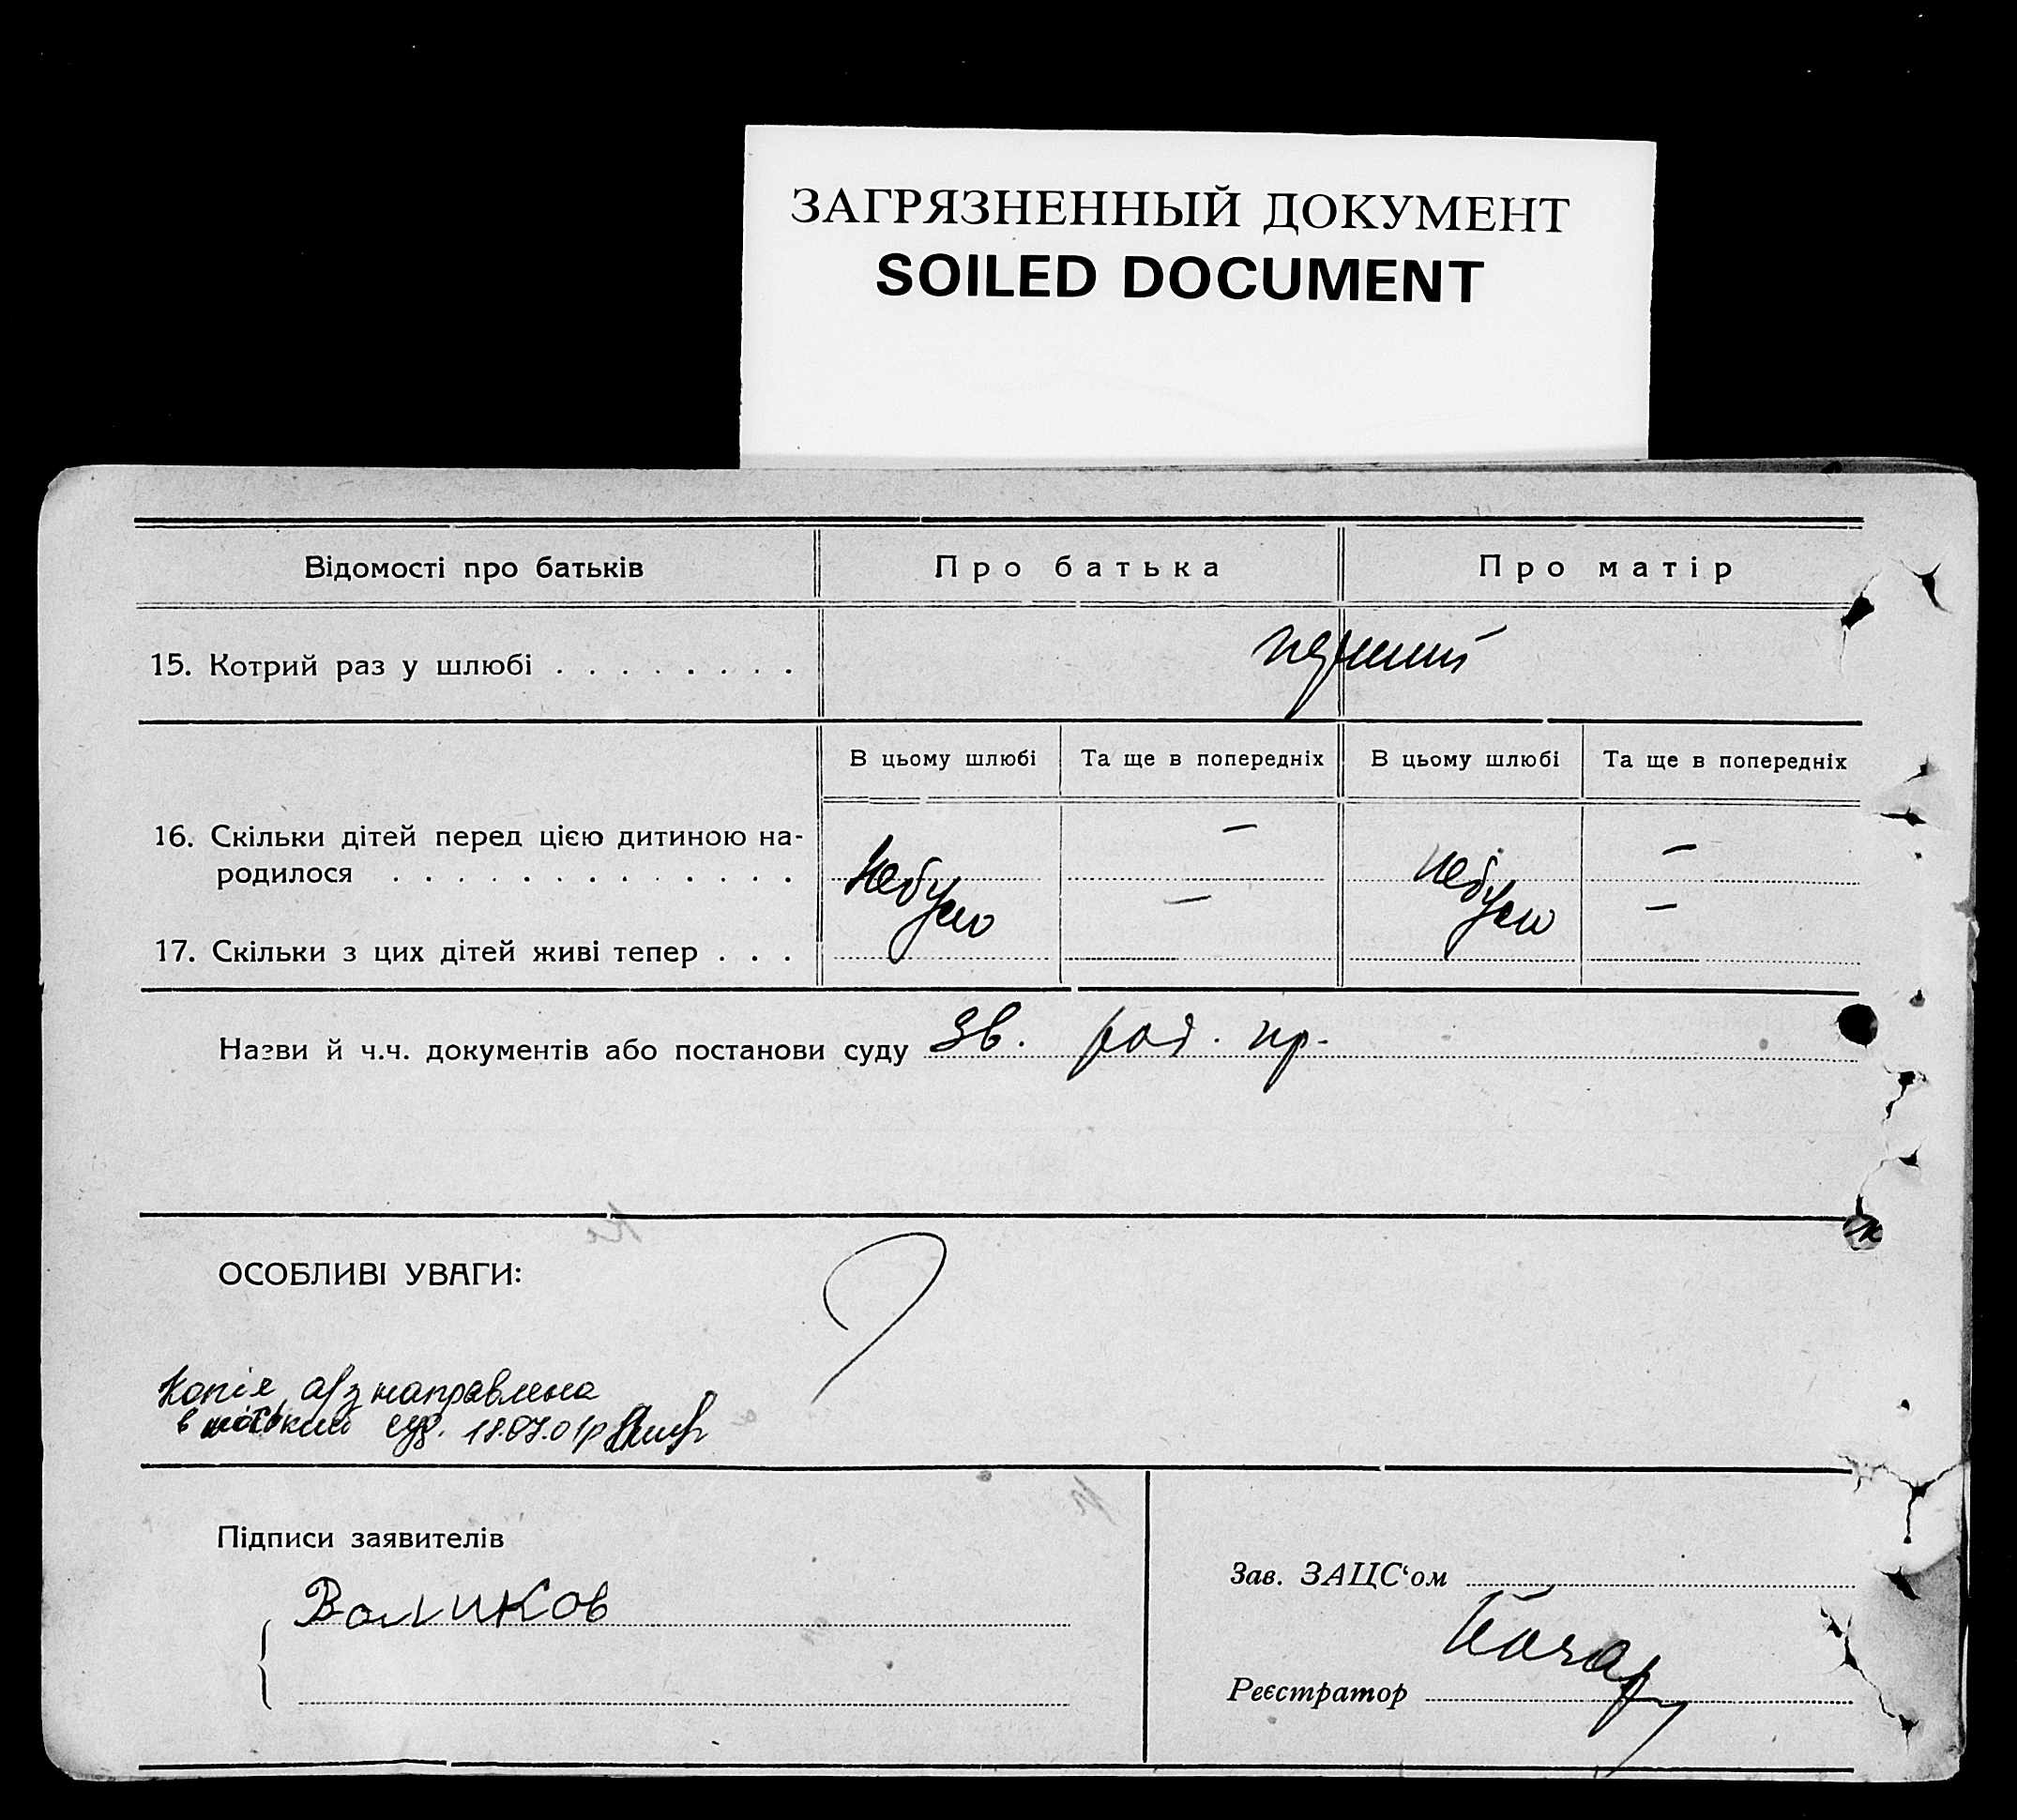 ЗАГРЯЗНЕННЫЙ ДОКУМЕНТ
SOILED DOCUMENT
Відомості про батьків
Про батька
Про матір
15. Котрий раз у шлюбі . . . . . . . .
перший
В цьому шлюбі
Та ще в попередніх
В цьому шлюбі
Та ще в попередніх
16. Скільки дітей перед цією дитиною на-
родилося . . . . . . . . . . . . .
небуло
—
небуло
—
17. Скільки з цих дітей живі тепер . . .
—
—
Назви й ч.ч. документів або постанови суду зв. род. пр.
ОСОБЛИВІ УВАГИ:
Копія а/з направлена
в міський суд. 18.07.01р
Підписи заявителів
Воликов
Зав. ЗАЦС‘ом
Реєстратор